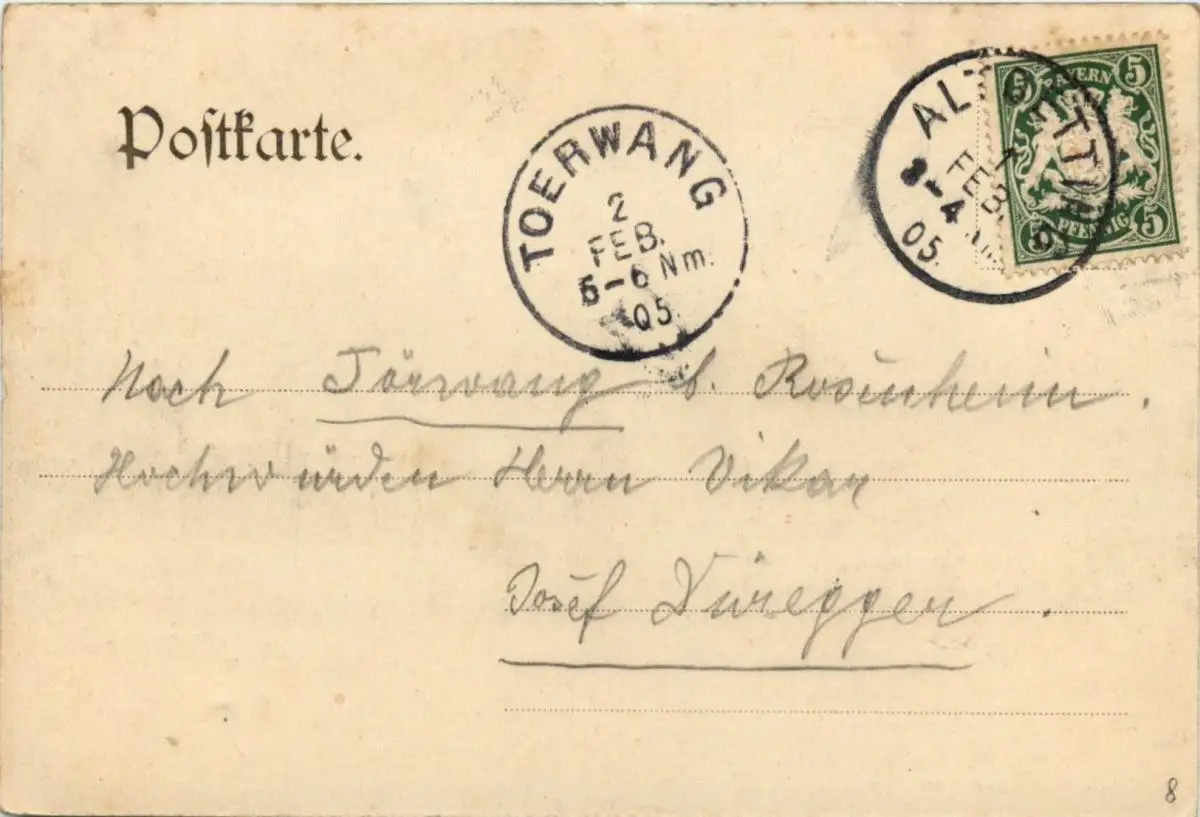 Postkarte.
TOERWANG
2
FEB.
5-6 Nm.
05
ALTOETTING
FEB.
3-4
05.
5 BAYERN 5
PFENNIG 5
Nach Törwang b. Rosenheim.
Hochwürden Herrn Vikar
Josef
8